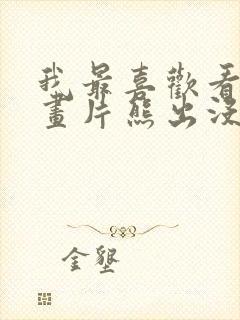 我最喜歡看
畫片熊出沒
金墾